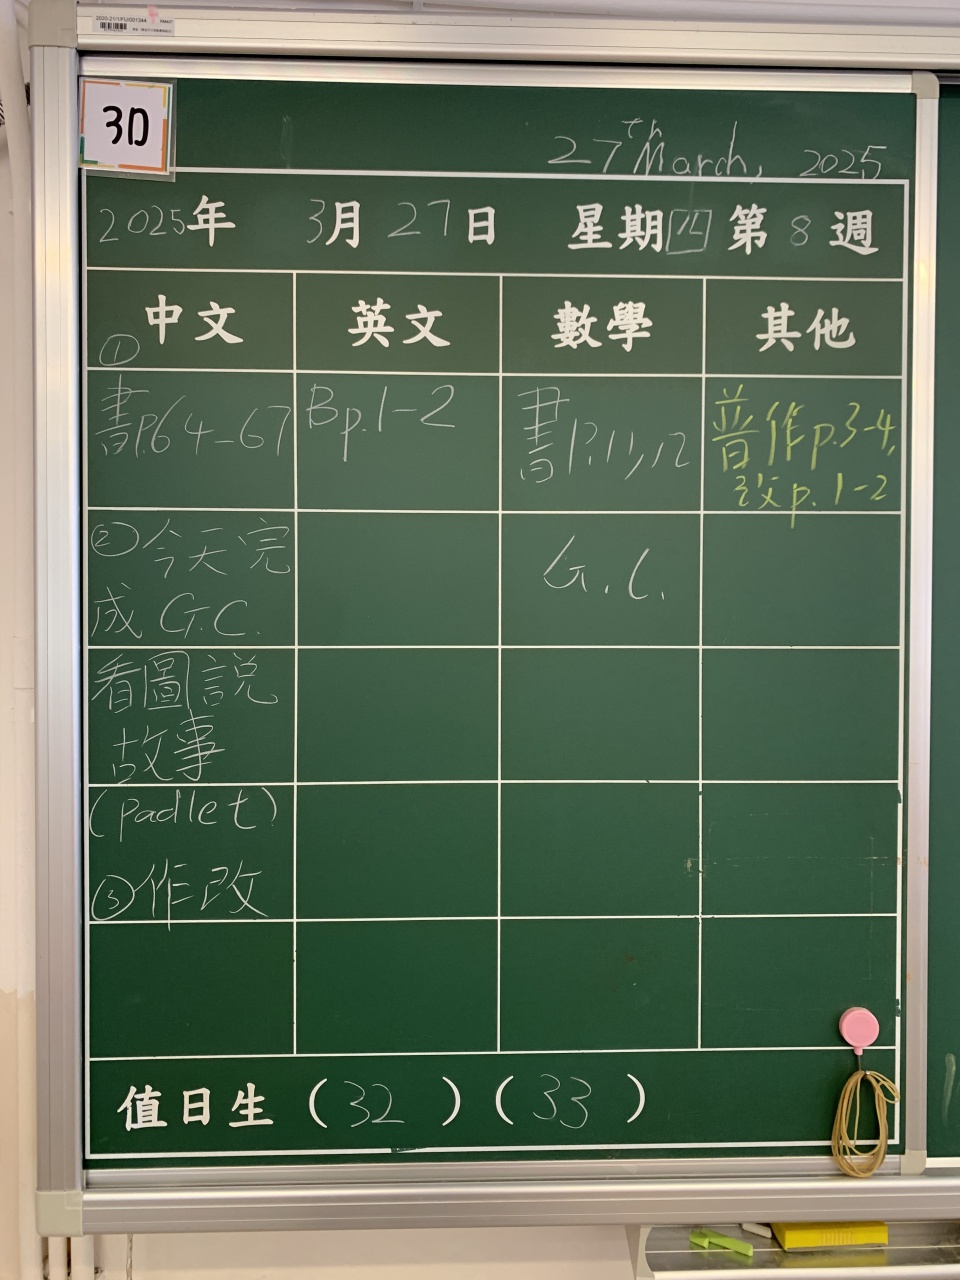 2020-21/1FU/001344
3D
27th March, 2025
2025年 3月27日 星期四 第8週
中文 英文 數學 其他
① 書P.64-67
② 今天完
成 G.C.
看圖說
故事
(padlet)
③ 作改
Bp.1-2
書P.11,12
G.C.
普作p.3-4,
改p.1-2
值日生 (32) (33)